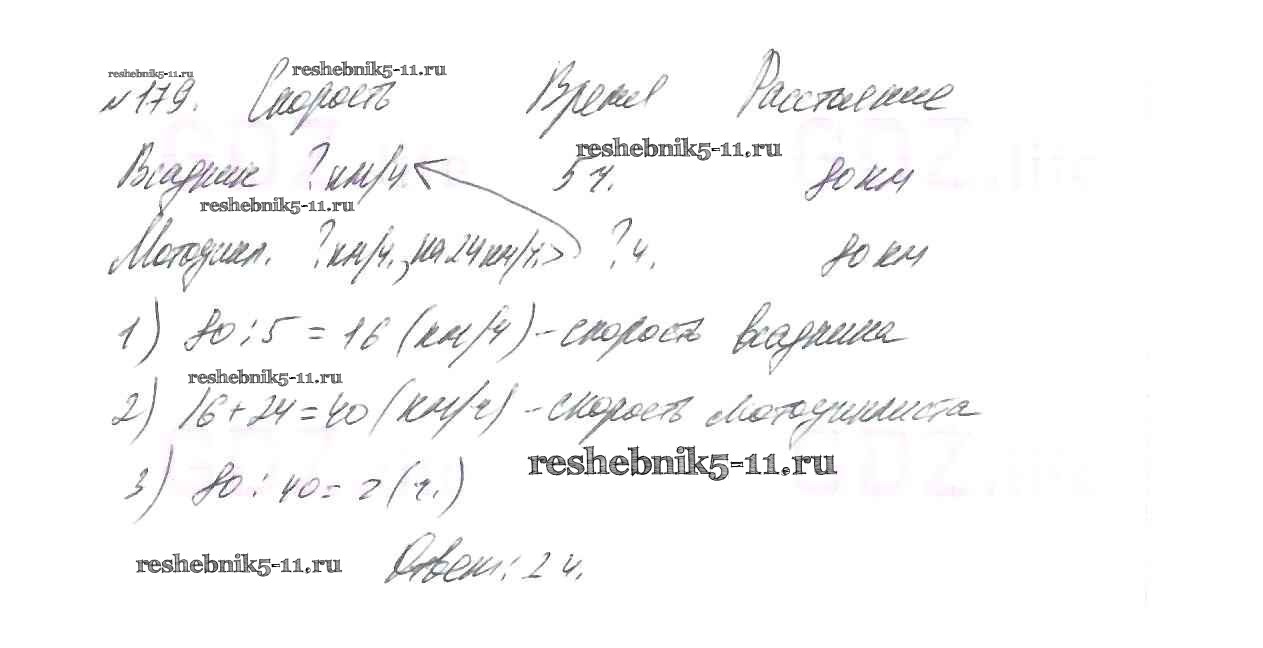 reshebnik5-11.ru
reshebnik5-11.ru
№179. Скорость Время Расстояние
reshebnik5-11.ru
Всадник ? км/ч. 5 ч. 80 км
reshebnik5-11.ru
Мотоцикл. ? км/ч., на 24 км/ч. > ? ч. 80 км
1) 80 : 5 = 16 (км/ч) - скорость всадника
reshebnik5-11.ru
2) 16 + 24 = 40 (км/ч) - скорость мотоциклиста
reshebnik5-11.ru
3) 80 : 40 = 2 (ч.)
reshebnik5-11.ru
Ответ: 2 ч.